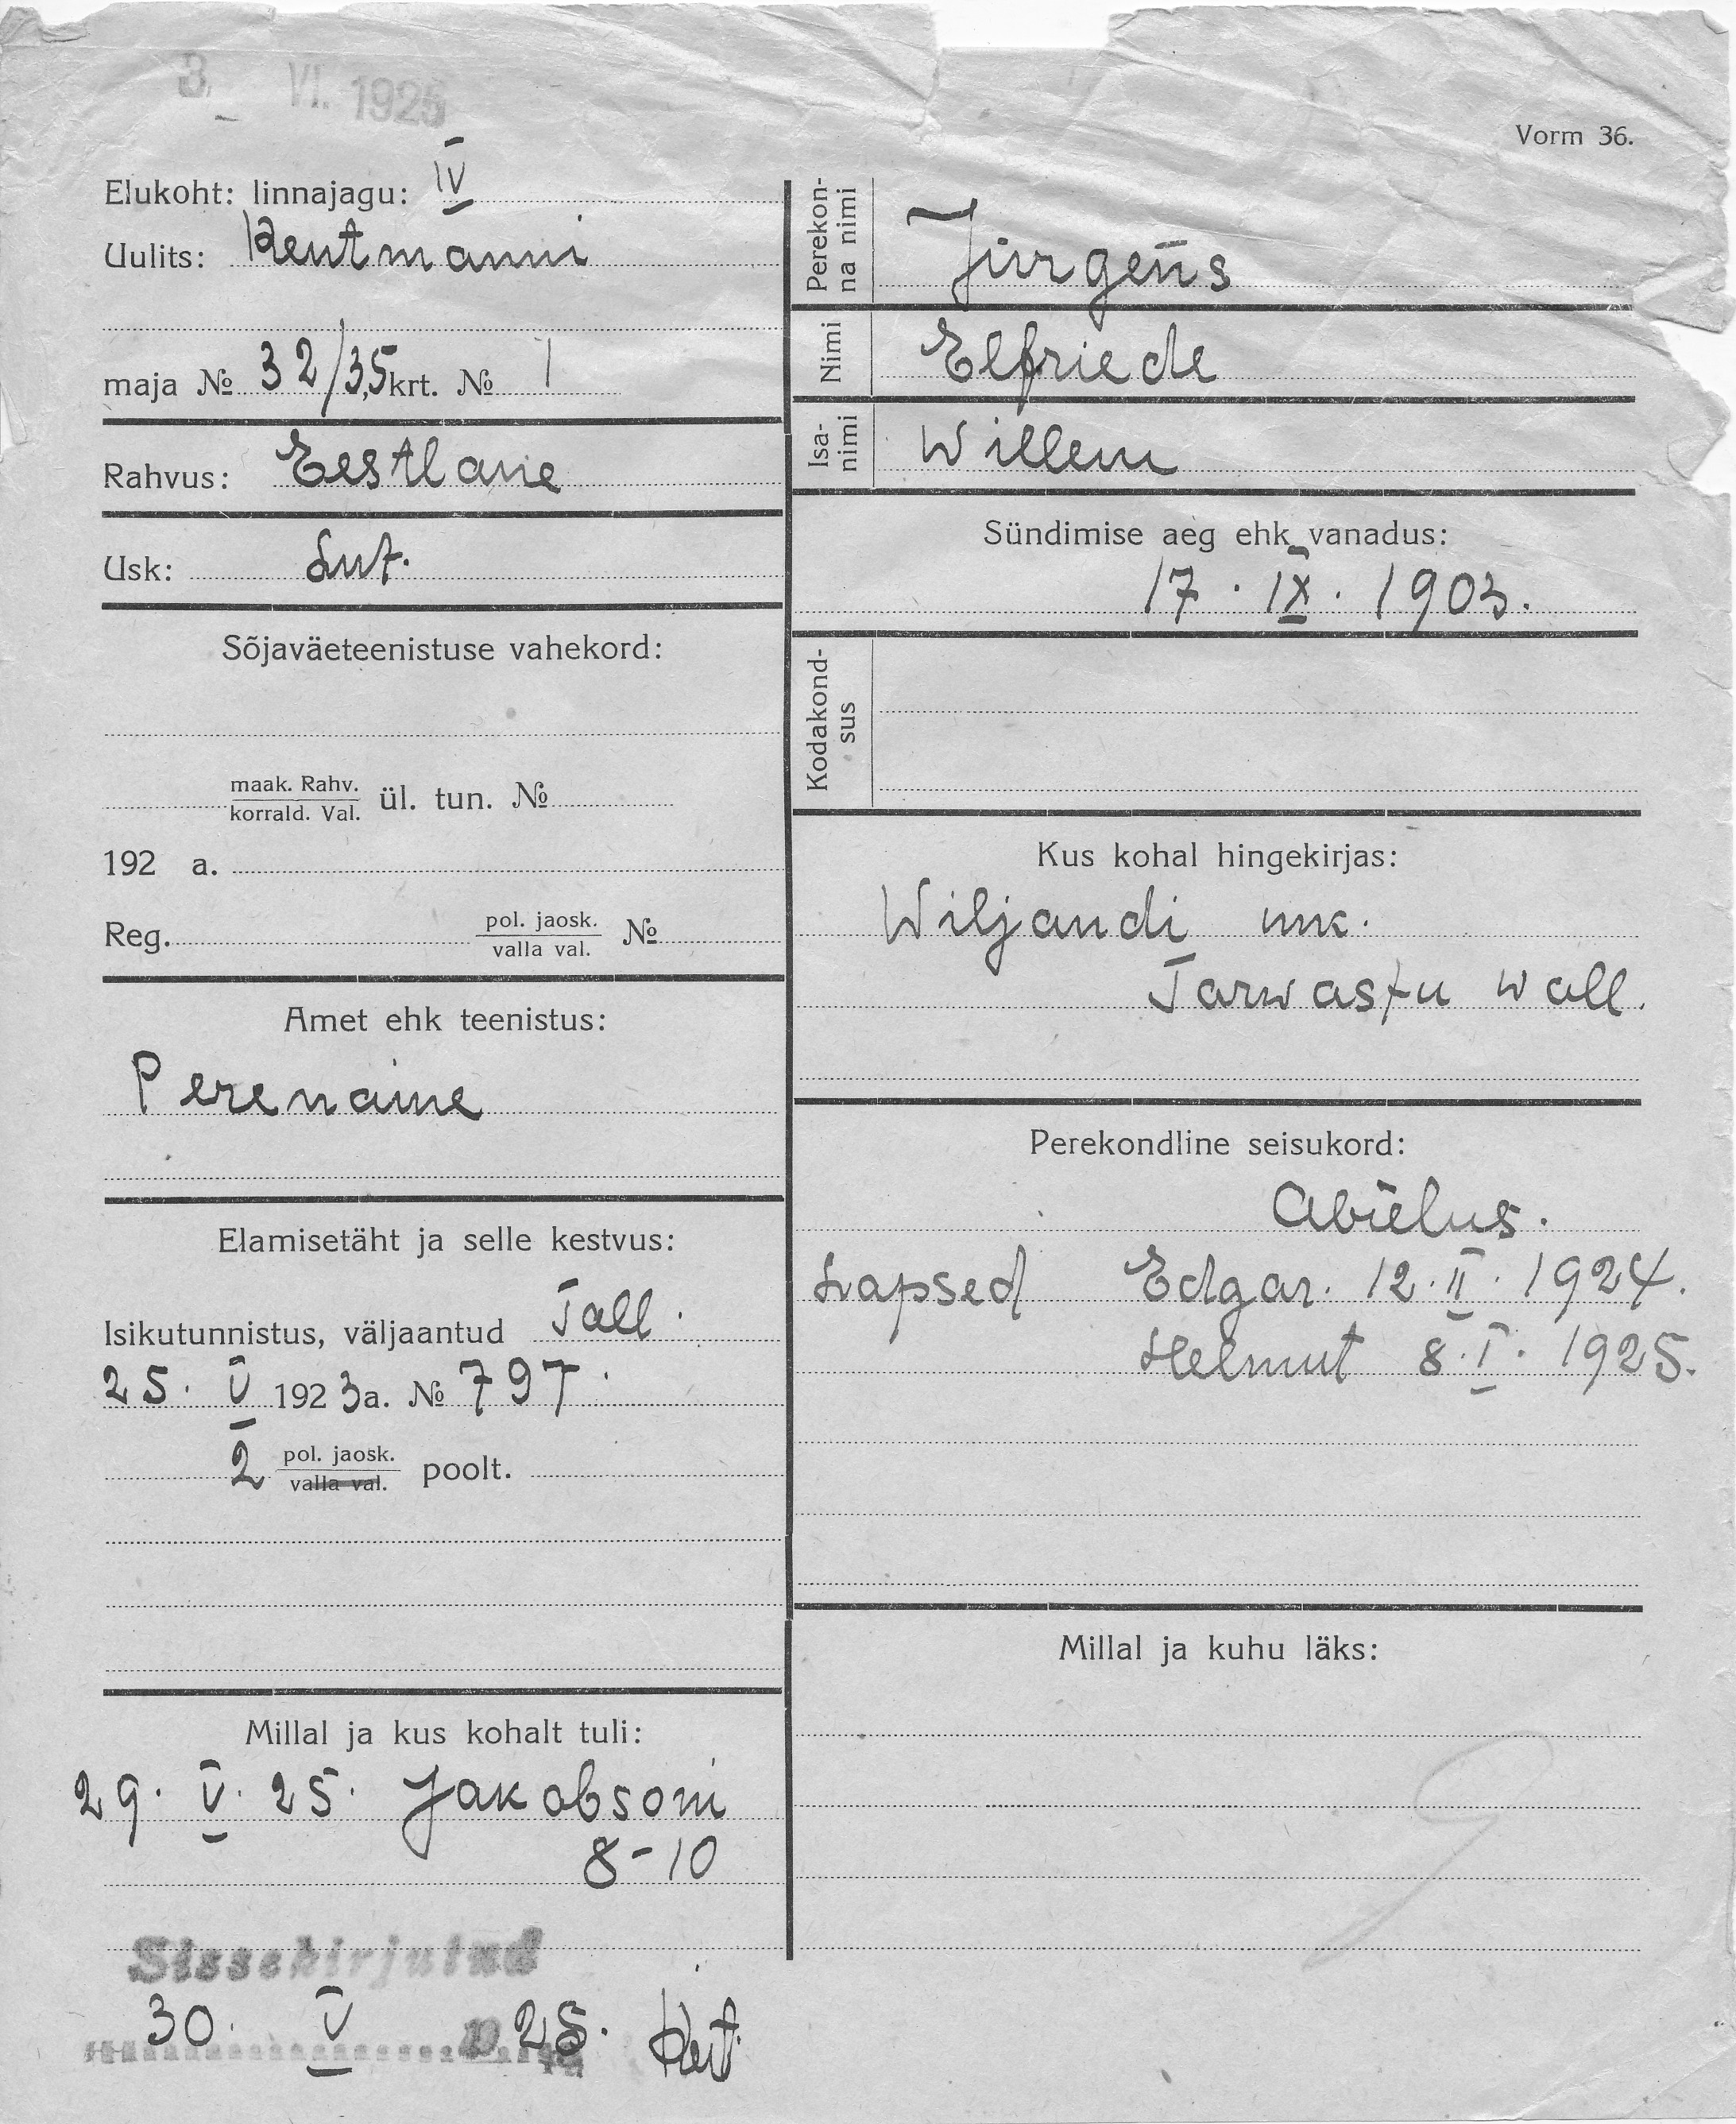 3. VI. 1925
Vorm 36.
Elukoht: linnajagu: IV
Uulits: Kentmanni
maja № 32/35 krt. № 1
Rahvus: Eestlane
Usk: Lut.
Sõjaväeteenistuse vahekord:
maak. Rahv.
korrald. Val. ül. tun. №
192 a.
Reg. pol. jaosk.
valla val. №
Amet ehk teenistus:
Perenaine
Elamisetäht ja selle kestvus:
Isikutunnistus, väljaantud Tall.
25. V 1923 a. № 797.
2 pol. jaosk.
valla val. poolt.
Millal ja kus kohalt tuli:
29. V. 25. Jakobsoni
8-10
Sissekirjutud
30. V 25.
Perekon-
na nimi Jürgens
Nimi Elfriede
Isa-
nimi Willem
Sündimise aeg ehk vanadus:
17. IX. 1903.
Kodakond-
sus
Kus kohal hingekirjas:
Wiljandi mk.
Tarwastu wall.
Perekondline seisukord:
Abielus.
Lapsed Edgar. 12. II. 1924.
Helmut 8. I. 1925.
Millal ja kuhu läks: